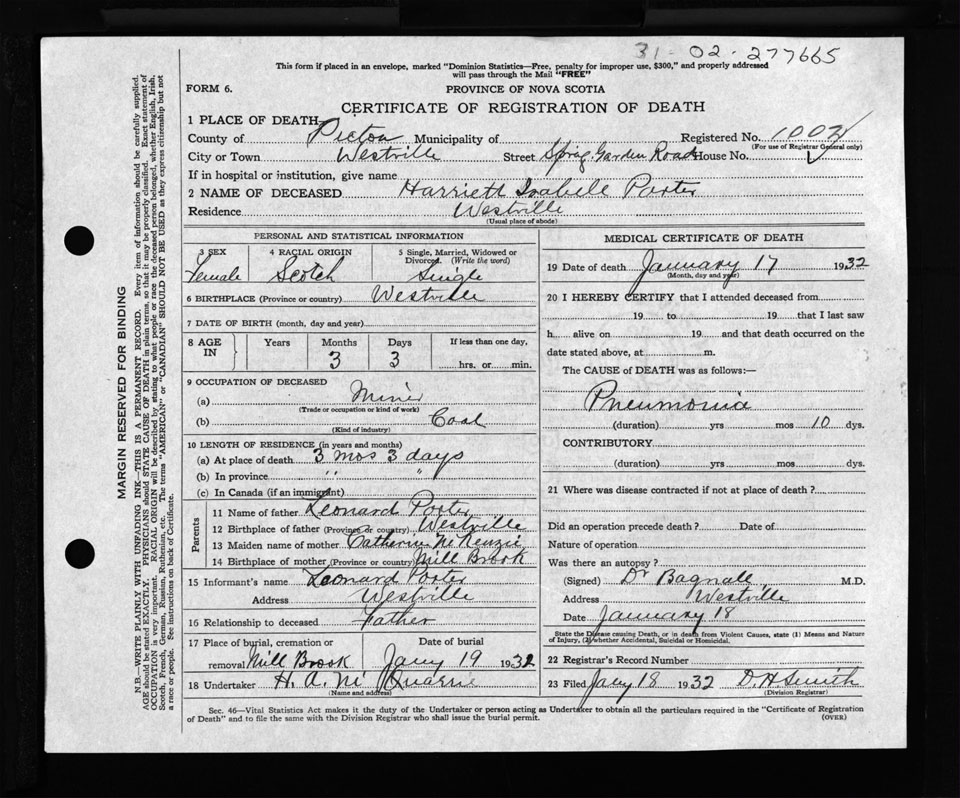 31-02-277665
This form if placed in an envelope, marked "Dominion Statistics—Free, penalty for improper use, $300," and properly addressed
will pass through the Mail "FREE"
FORM 6. PROVINCE OF NOVA SCOTIA
CERTIFICATE OF REGISTRATION OF DEATH
1 PLACE OF DEATH—
County of Pictou Municipality of Registered No. 1002
(For use of Registrar General only)
City or Town Westville Street Sprig Garden Road House No.
If in hospital or institution, give name
2 NAME OF DECEASED Harriett Isabele Porter
Residence Westville
(Usual place of abode)
PERSONAL AND STATISTICAL INFORMATION
3 SEX 4 RACIAL ORIGIN 5 Single, Married, Widowed or
Divorced. (Write the word)
Female Scotch Single
6 BIRTHPLACE (Province or country) Westville
7 DATE OF BIRTH (month, day and year)
8 AGE IN Years Months Days If less than one day,
3 3 hrs. or min.
9 OCCUPATION OF DECEASED
(a) Miner
(Trade or occupation or kind of work)
(b) Coal
(Kind of industry)
10 LENGTH OF RESIDENCE (in years and months)
(a) At place of death 3 mos 3 days
(b) In province " "
(c) In Canada (if an immigrant)
Parents
11 Name of father Leonard Porter
12 Birthplace of father (Province or country) Westville
13 Maiden name of mother Catherine McKenzie
14 Birthplace of mother (Province or country) Mill Brook
15 Informant's name Leonard Porter
Address Westville
16 Relationship to deceased Father
17 Place of burial, cremation or Date of burial
removal Mill Brook Jany 19 1932
18 Undertaker H. A. Mc Quarrie
(Name and address)
MEDICAL CERTIFICATE OF DEATH
19 Date of death January 17 1932
(Month, day and year)
20 I HEREBY CERTIFY that I attended deceased from
19 to 19 that I last saw
h alive on 19 and that death occurred on the
date stated above, at m.
The CAUSE of DEATH was as follows:—
Pneumonia
(duration) yrs mos 10 dys.
CONTRIBUTORY
(duration) yrs mos dys.
21 Where was disease contracted if not at place of death?
Did an operation precede death? Date of
Nature of operation
Was there an autopsy?
(Signed) Dr Bagnall M.D.
Address Westville
Date January 18
State the Disease causing Death, or in death from Violent Causes, state (1) Means and Nature
of Injury, (2) whether Accidental, Suicidal or Homicidal.
22 Registrar's Record Number
23 Filed Jany 18 1932 D. H. Smith
(Division Registrar)
Sec. 46—Vital Statistics Act makes it the duty of the Undertaker or person acting as Undertaker to obtain all the particulars required in the "Certificate of Registration
of Death" and to file the same with the Division Registrar who shall issue the burial permit. (OVER)
MARGIN RESERVED FOR BINDING
N.B.—WRITE PLAINLY WITH UNFADING INK—THIS IS A PERMANENT RECORD. Every item of information should be carefully supplied.
AGE should be stated EXACTLY. PHYSICIANS should STATE CAUSE OF DEATH in plain terms, so that it may be properly classified. Exact statement of
OCCUPATION is very important. RACIAL ORIGIN will be described by stating to what people or race the deceased person belonged, whether English, Irish,
Scotch, French, German, Russian, Ruthenian, etc. The terms "AMERICAN" or "CANADIAN" SHOULD NOT BE USED as they express citizenship but not
a race or people. See instructions on back of Certificate.